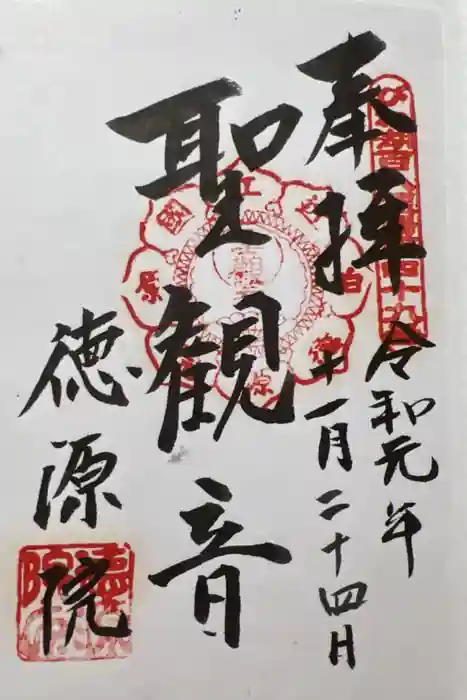 奉拝
令和元年
十一月二十四日
聖観音
徳源院